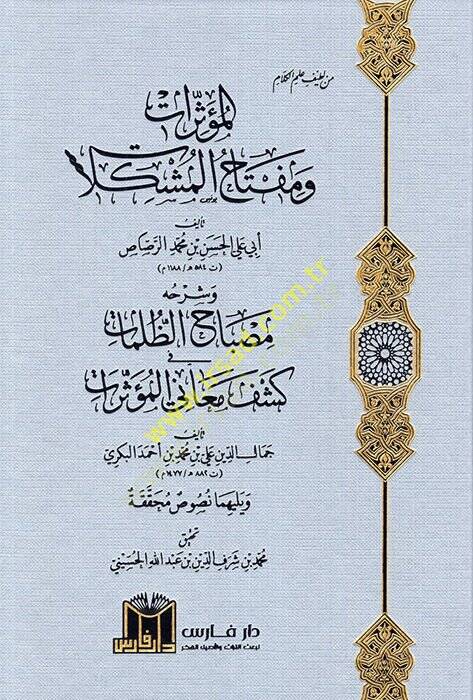 من لطيف علم الكلام
المؤثرات
ومفتاح المشكلات
تأليف
أبي علي الحسن بن محمد الرصاص
(ت ٥٨٤ هـ / ١١٨٨ م)
وشرحه
مصباح الظلمات
في
كشف معاني المؤثرات
تأليف
جمال الدين علي بن محمد بن أحمد البكري
(ت ٨٨٢ هـ / ١٤٧٧ م)
ويليهما نصوص محققة
تحقيق
محمد بن شرف الدين بن عبد الله الحسيني
دار فارس
دار فارس
لبعث التراث وتأصيل الفكر
www.issad.com.tr